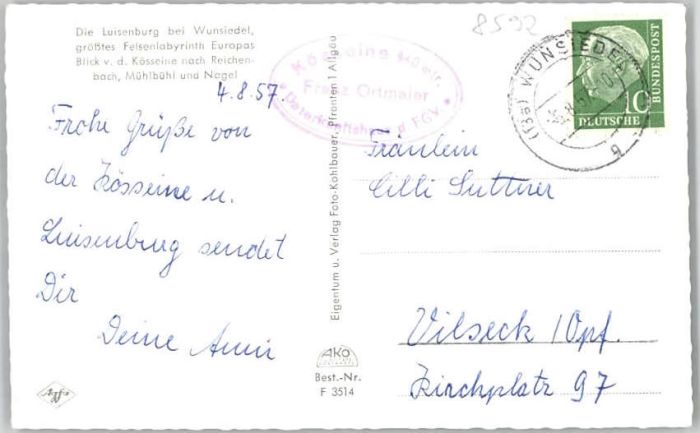 Die Luisenburg bei Wunsiedel,
größtes Felsenlabyrinth Europas
Blick v. d. Kösseine nach Reichen-
bach, Mühlbühl und Nagel
4.8.57.
Frohe Grüße von
der Kösseine u.
Luisenburg sendet
Dir
Deine Anni
Agfa
Eigentum u. Verlag Foto-Kohlbauer, Pfronten 1 Allgäu
AKO
Best.-Nr.
F 3514
8592
Kösseine
Franz Ortmaier
d. FGV
WUNSIEDEL
b
10
DEUTSCHE
BUNDESPOST
Fräulein
Cilli Sutterer
Vilseck / Opf.
Kirchplatz 97